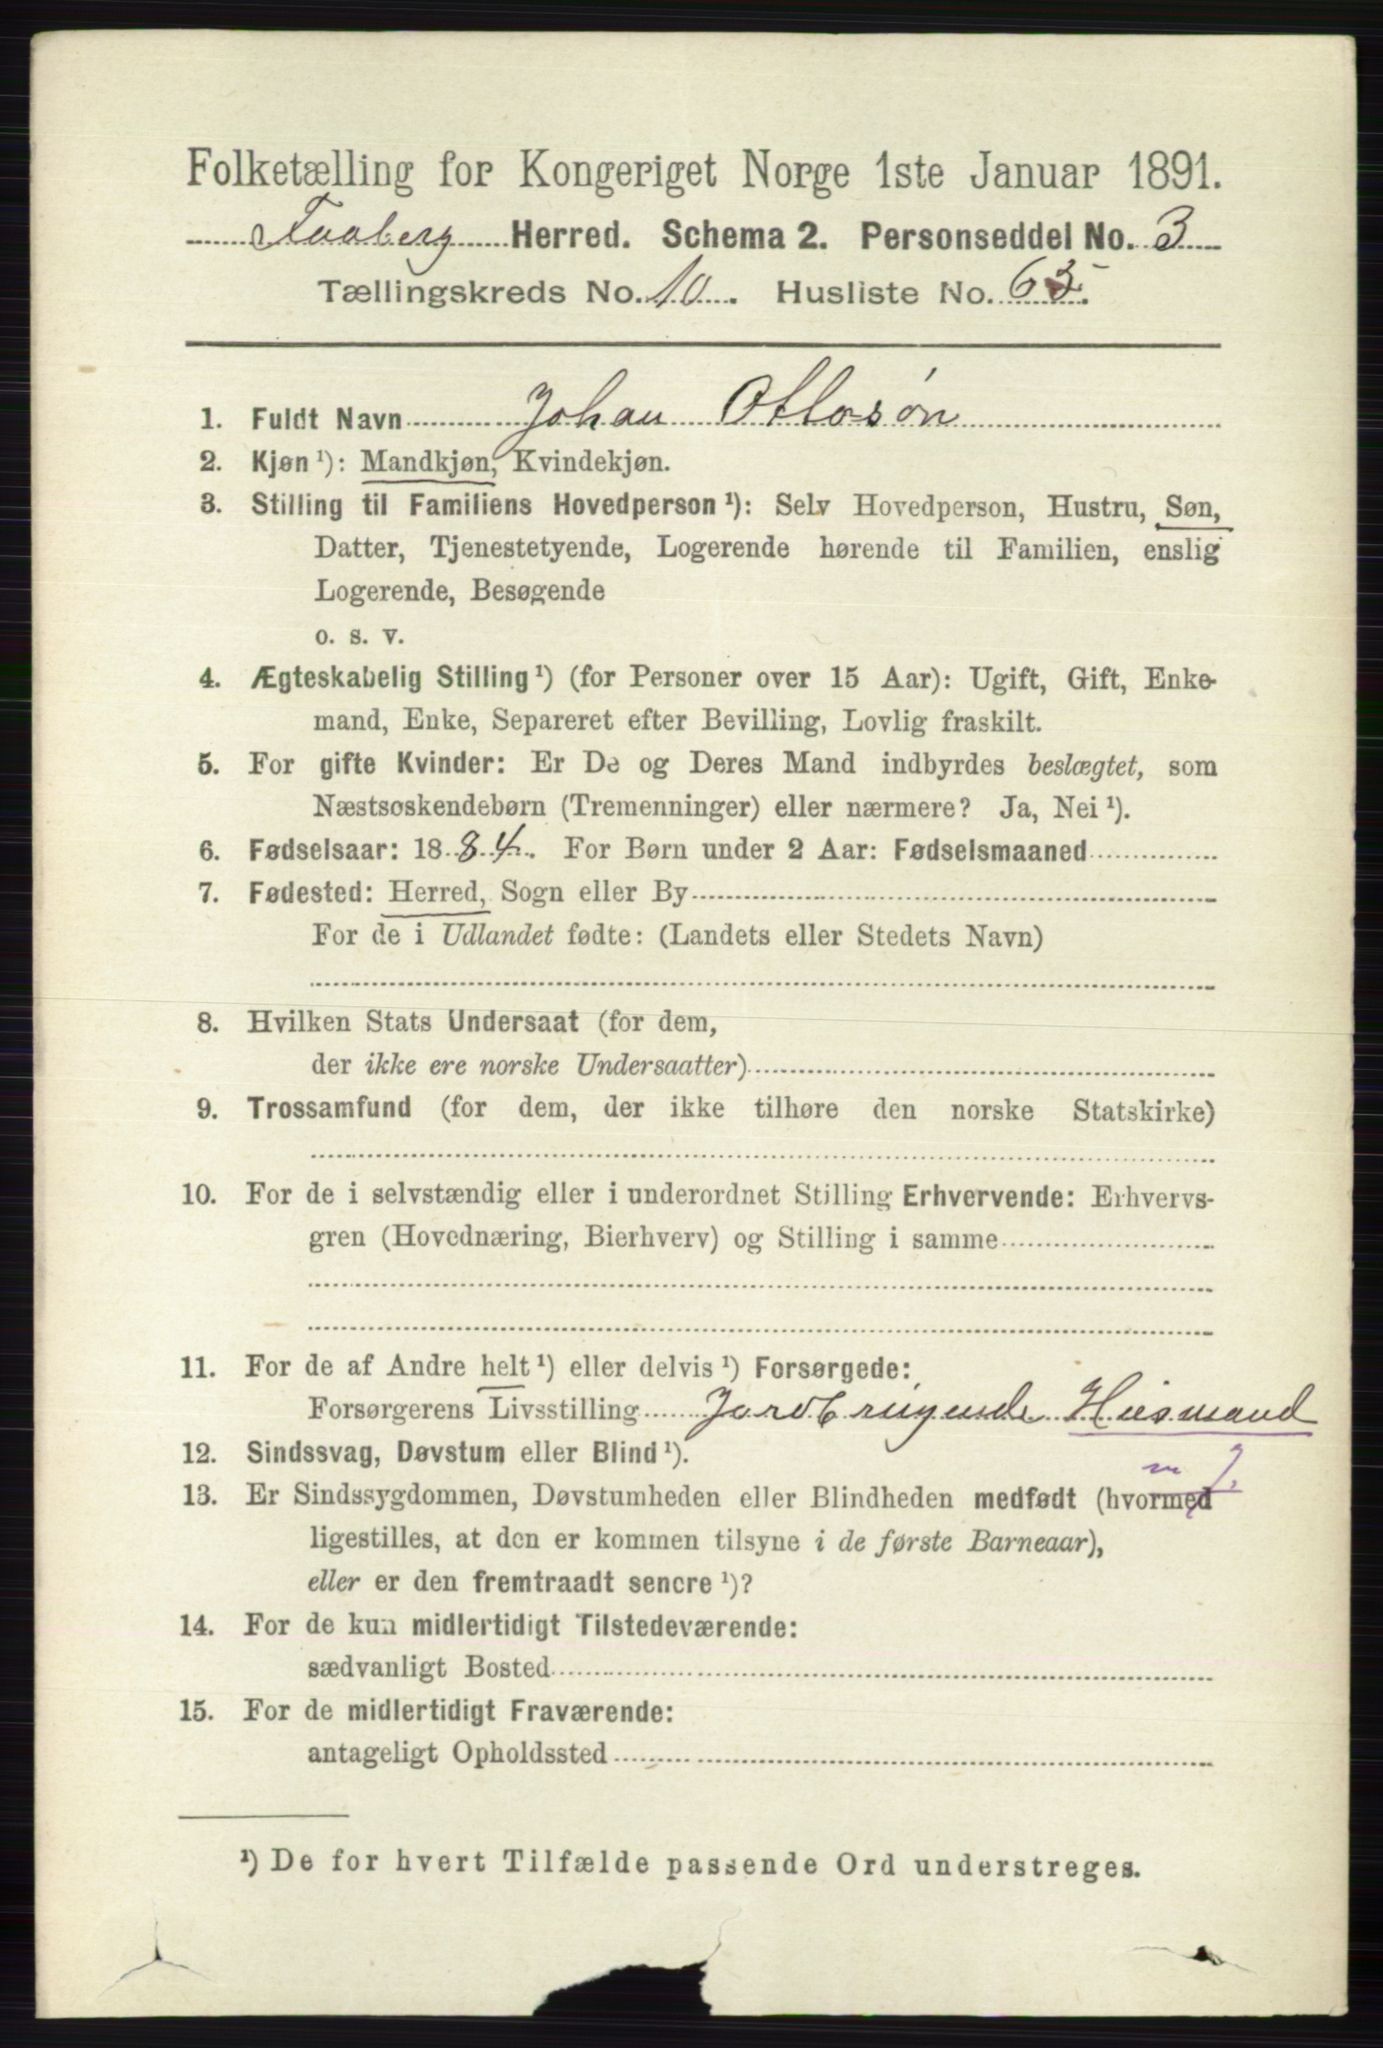 Folketælling for Kongeriget Norge 1ste Januar 1891.
Faaberg Herred. Schema 2. Personseddel No. 3
Tællingskreds No. 10. Husliste No. 63.
1. Fuldt Navn Johan Ottosøn
2. Kjøn ¹): Mandkjøn, Kvindekjøn.
3. Stilling til Familiens Hovedperson ¹): Selv Hovedperson, Hustru, Søn,
Datter, Tjenestetyende, Logerende hørende til Familien, enslig
Logerende, Besøgende
o. s. v.
4. Ægteskabelig Stilling ¹) (for Personer over 15 Aar): Ugift, Gift, Enke-
mand, Enke, Separeret efter Bevilling, Lovlig fraskilt.
5. For gifte Kvinder: Er De og Deres Mand indbyrdes beslægtet, som
Næstsøskendebørn (Tremenninger) eller nærmere? Ja, Nei ¹).
6. Fødselsaar: 1884. For Børn under 2 Aar: Fødselsmaaned
7. Fødested: Herred, Sogn eller By
For de i Udlandet fødte: (Landets eller Stedets Navn)
8. Hvilken Stats Undersaat (for dem,
der ikke ere norske Undersaatter)
9. Trossamfund (for dem, der ikke tilhøre den norske Statskirke)
10. For de i selvstændig eller i underordnet Stilling Erhvervende: Erhvervs-
gren (Hovednæring, Bierhverv) og Stilling i samme
11. For de af Andre helt ¹) eller delvis ¹) Forsørgede:
Forsørgerens Livsstilling Jordbrugende Husmand
12. Sindssvag, Døvstum eller Blind ¹).
m J.
13. Er Sindssygdommen, Døvstumheden eller Blindheden medfødt (hvormed
ligestilles, at den er kommen tilsyne i de første Barneaar),
eller er den fremtraadt senere ¹)?
14. For de kun midlertidigt Tilstedeværende:
sædvanligt Bosted
15. For de midlertidigt Fraværende:
antageligt Opholdssted
¹) De for hvert Tilfælde passende Ord understreges.